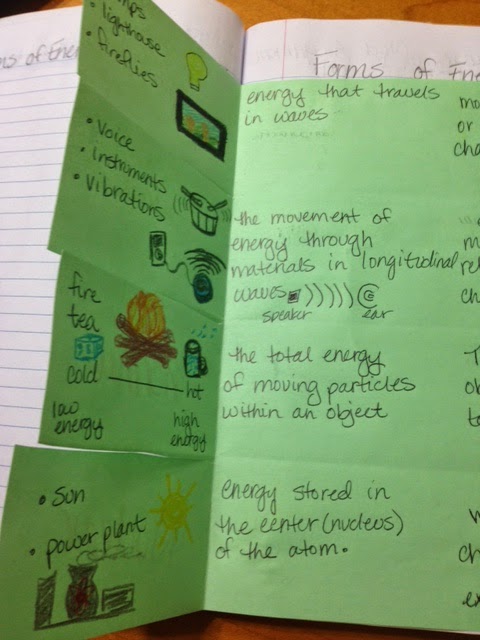 Forms of Ene
lighthouse
fireflies
energy that travels
in waves
voice
instruments
vibrations
the movement of
energy through
materials in longitudinal
waves
speaker ear
fire
tea
cold hot
low
energy
high
energy
the total energy
of moving particles
within an object
sun
power plant
energy stored in
the center (nucleus)
of the atom.
mo
or
cha
m
rel
ch
T
ob
to
w
ch
ex